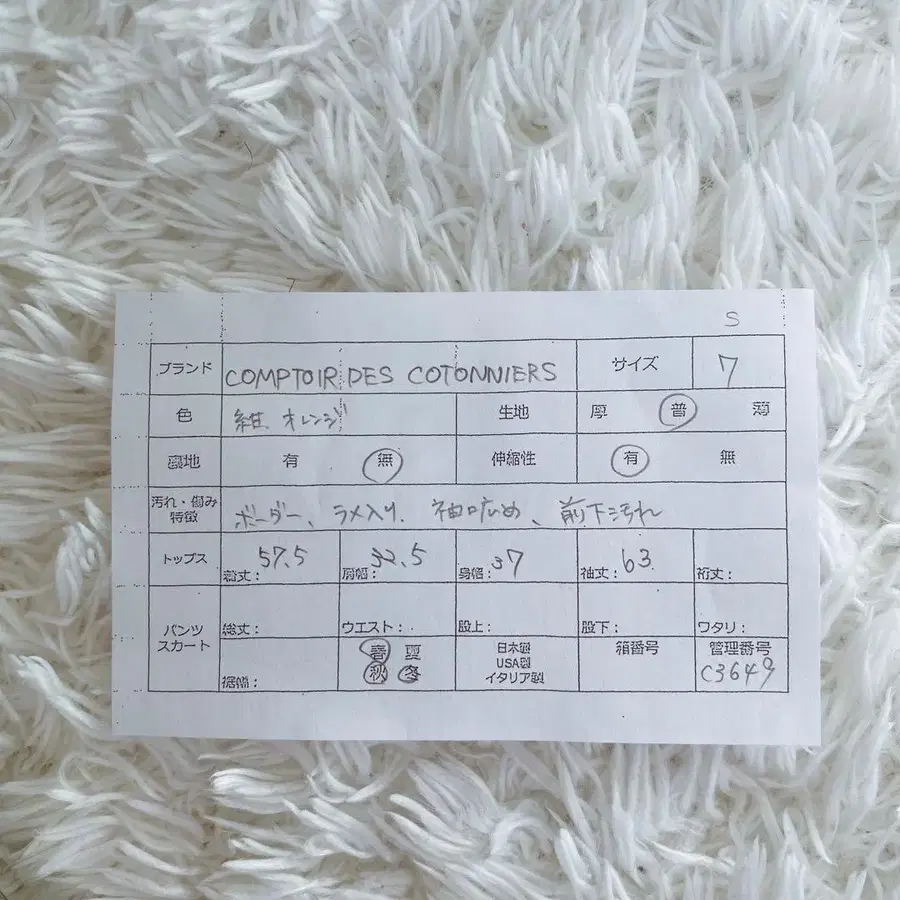 S
ブランド COMPTOIR DES COTONNIERS サイズ 7
色 紺、オレンジ 生地 厚 普 薄
裏地 有 無 伸縮性 有 無
汚れ・傷み
特徴 ボーダー、ラメ入り、袖口広め、前下汚れ
トップス 着丈: 57.5 肩幅: 32.5 身幅: 37 袖丈: 63 裄丈:
パンツ
スカート 総丈: ウエスト: 股上: 股下: ワタリ:
裾幅: 春 夏 秋 冬 日本製 USA製 イタリア製 箱番号 管理番号 C3649